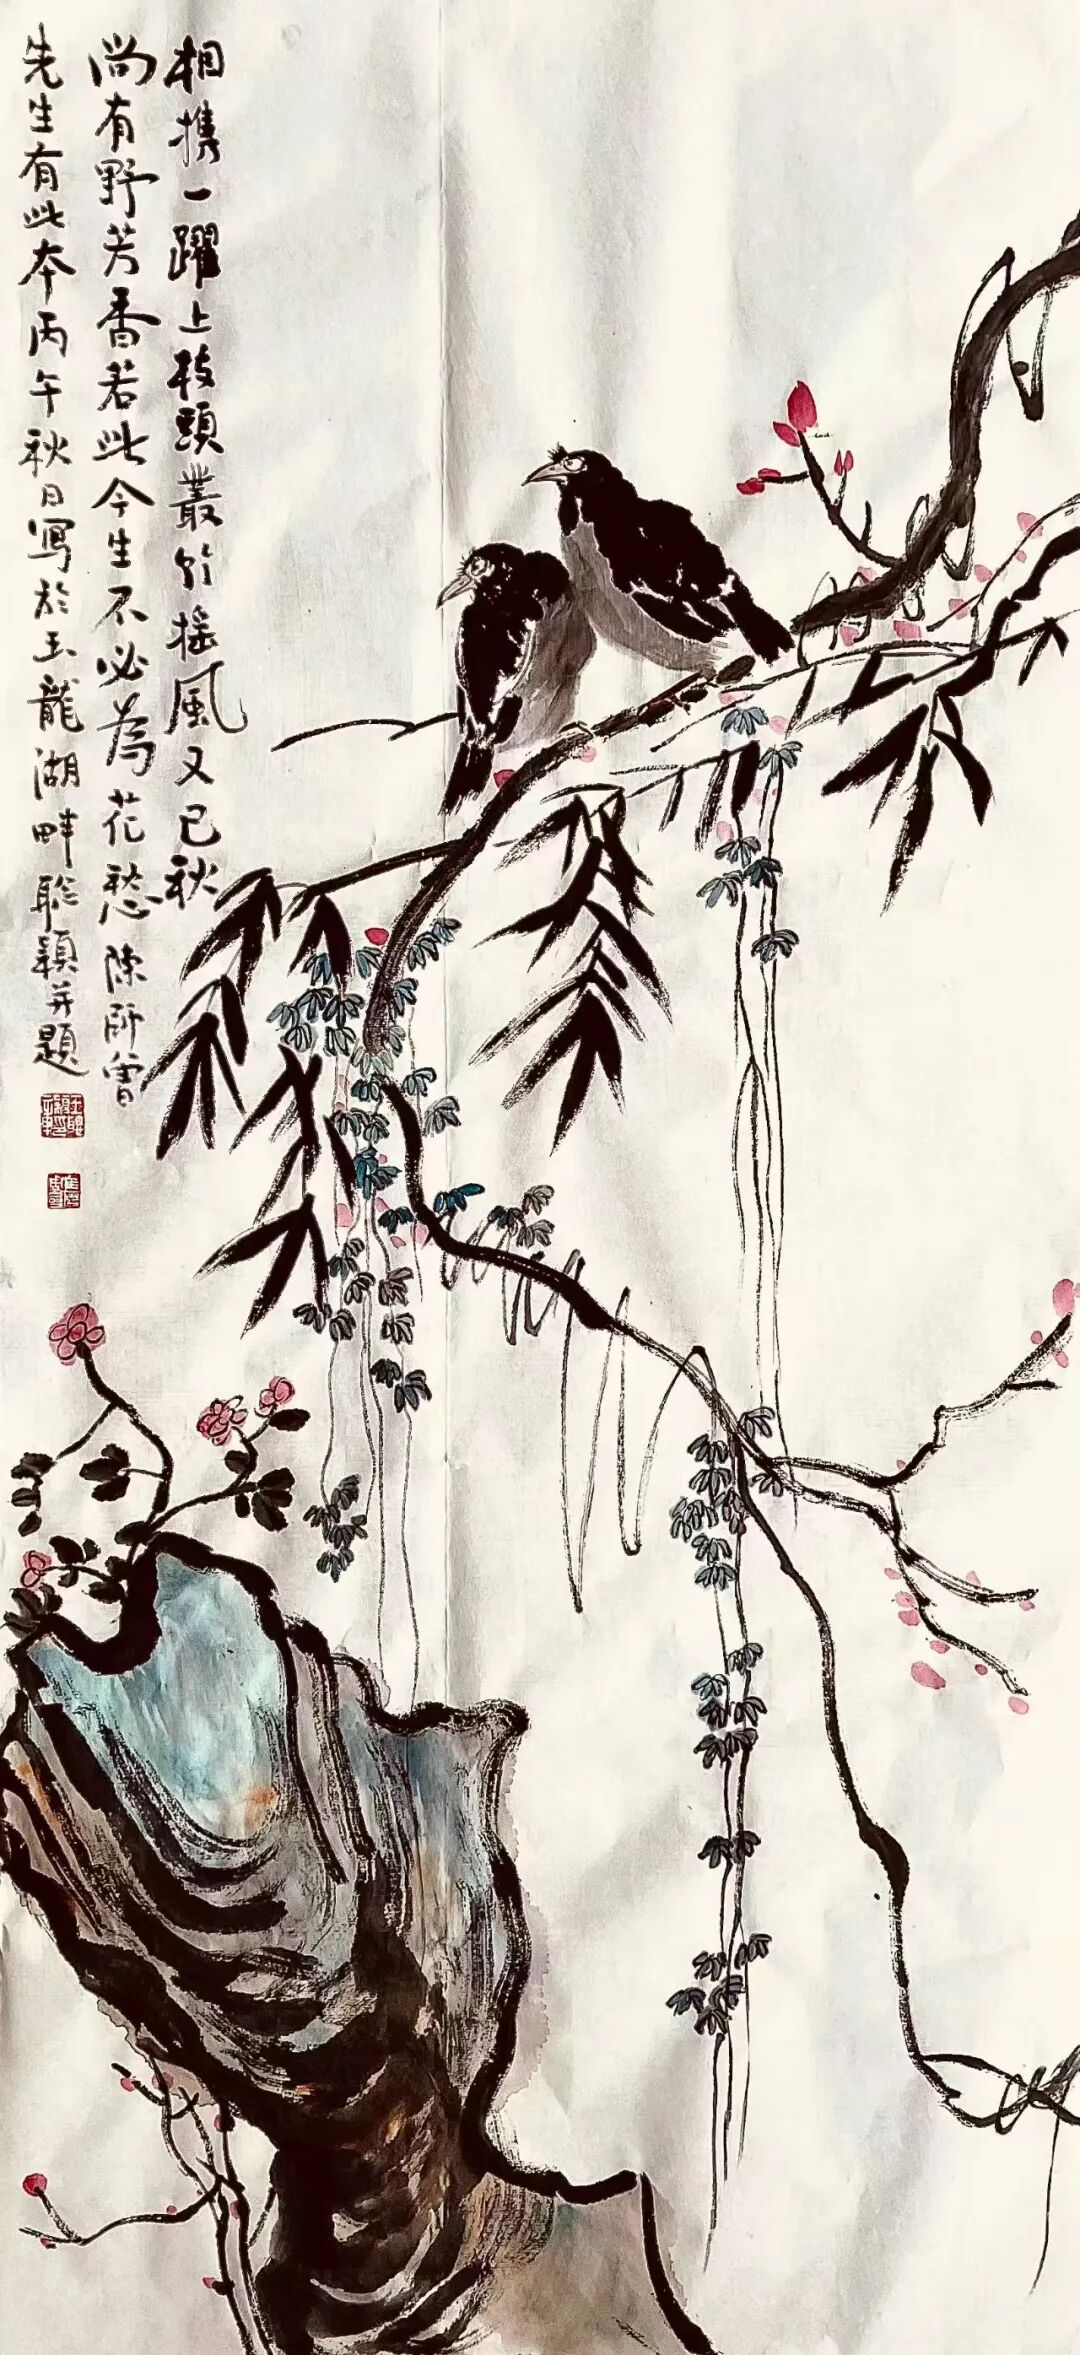 相携一躍上枝頭叢竹摇風又已秋
尚有野芳香若此今生不必為花愁陳師曾
先生有此本丙午秋日寫於玉龍湖畔聡穎并題